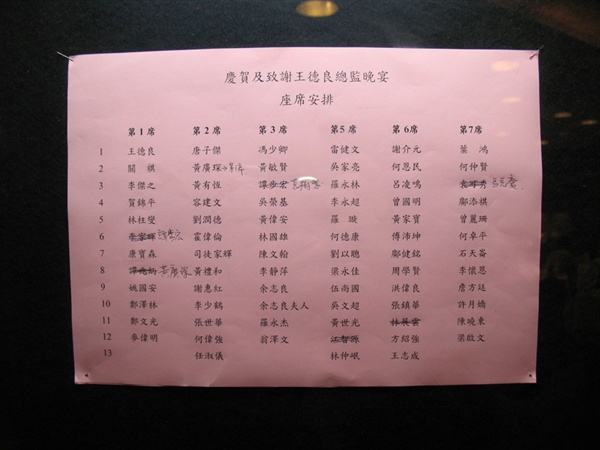 慶賀及致謝王德良總監晚宴
座席安排
第1席 第2席 第3席 第5席 第6席 第7席
1 王德良 唐子傑 馮少卿 雷健文 謝介元 葉鴻
2 關祺 黃廣琛 黃敏賢 吳家亮 何恩民 何仲賢
3 李傑之 黃有恆 譚步宏 羅永林 呂凌鳴
4 賀錦平 容建文 吳榮基 李永超 曾國明 鄺添祺
5 林柱燮 劉潤德 黃偉安 羅璇 黃家寶 曾麗珊
6 李家輝 霍偉倫 林國雄 何德康 傅沛坤 何卓平
7 康寶森 司徒家輝 陳文翰 劉以聰 鄺健銘 石天崙
8 黃禮和 李靜萍 梁永佳 周學賢 李懷恩
9 姚國安 謝惠紅 余志良 伍尚國 洪偉良 詹方廷
10 鄭澤林 李少鶴 余志良夫人 吳文超 張鎮華 許月嬌
11 鄭文光 張世華 羅永杰 黃世光 林展雲 陳曉東
12 麥偉明 何偉強 翁澤文 江智源 方紹強 梁啟文
13 任淑儀 林仲岷 王志成